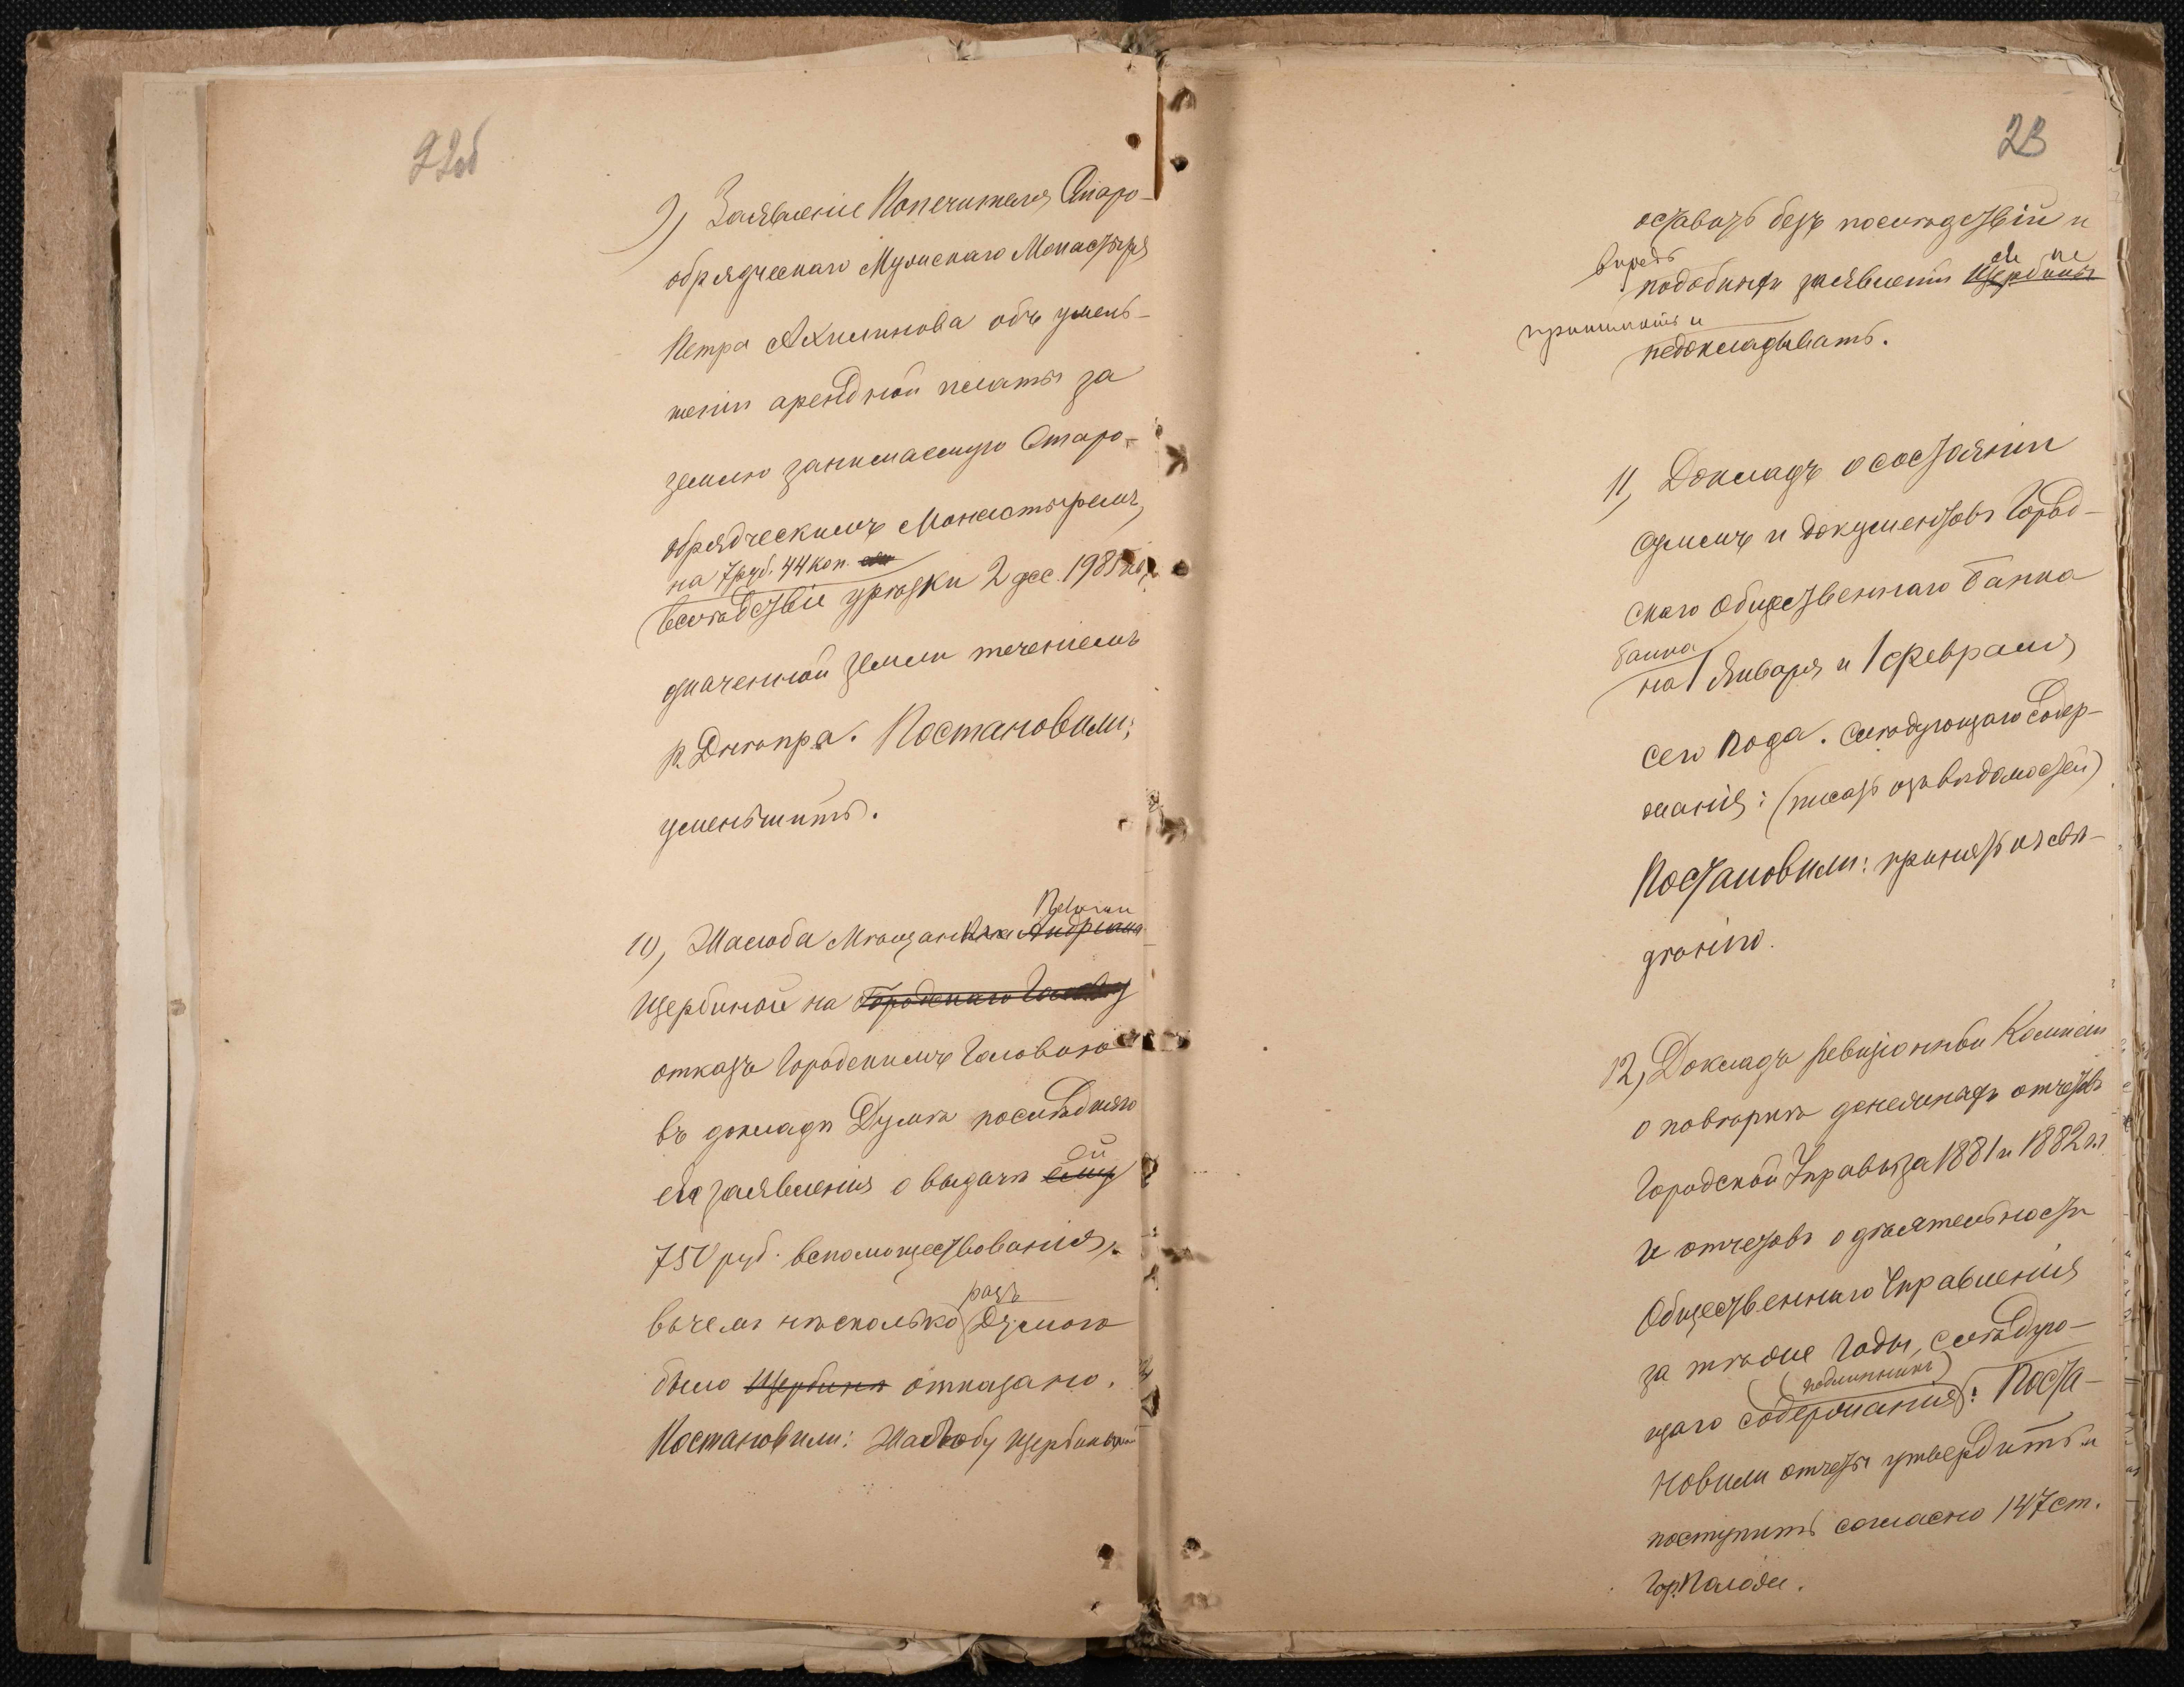 22об
9) Заявленіе Попечителя Старо-
обрядческаго Мужскаго Монастыря
Петра Ахилинова объ умень-
шеніи арендной платы за
землю занимаемую Старо-
обрядческимъ Монастыремъ,
на 7 руб. 44 коп.
вслѣдствіе урѣзки 2 дес. 1985
означенной земли теченіемъ
р. Днѣпра. Постановили:
уменьшить.
10) Жалоба Мѣщанки Андріана
Щербиной на Городскаго Голову
отказъ Городскимъ Головою
въ докладѣ Думѣ послѣдняго
ея заявленія о выдачѣ ему ей
750 руб. вспомоществованія,
въ чемъ нѣсколько разъ Думою
было Щербинѣ отказано.
Постановили: Жалобу Щербиной
23
оставить безъ послѣдствій и
впредь подобныхъ заявленій Щербины ея не
принимать и
недокладывать.
11) Докладъ о состояніи
суммъ и документовъ Город-
скаго Общественнаго Банка
банка
на 1 Января и 1 Февраля
сего года. слѣдующаго содер-
жанія: (писать изъ вѣдомостей)
Постановили: принять къ свѣ-
дѣнію.
12) Докладъ Ревизіонной Комисіи
о повѣркѣ денежныхъ отчетовъ
Городской Управы за 1881 и 1882 гг.
и отчетовъ о дѣятельности
Общественнаго Управленія
за тѣ же годы, слѣдую-
(подлинникъ)
щаго содержанія: Поста-
новили отчеты утвердить и
поступить согласно 147 ст.
Гор. Полож.